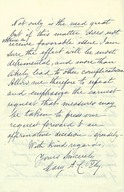 Not only is the need great
but if this matter does not
receive favorable issue I am
sure the effect will be most
detrimental, and more than
likely lead to then complications
Allow me therefore to repeat
and emphasize the earnest
request that measures may
be taken to press our
request forward to an
affirmative decision - speedily.
With kind regards
Yours Sincerely